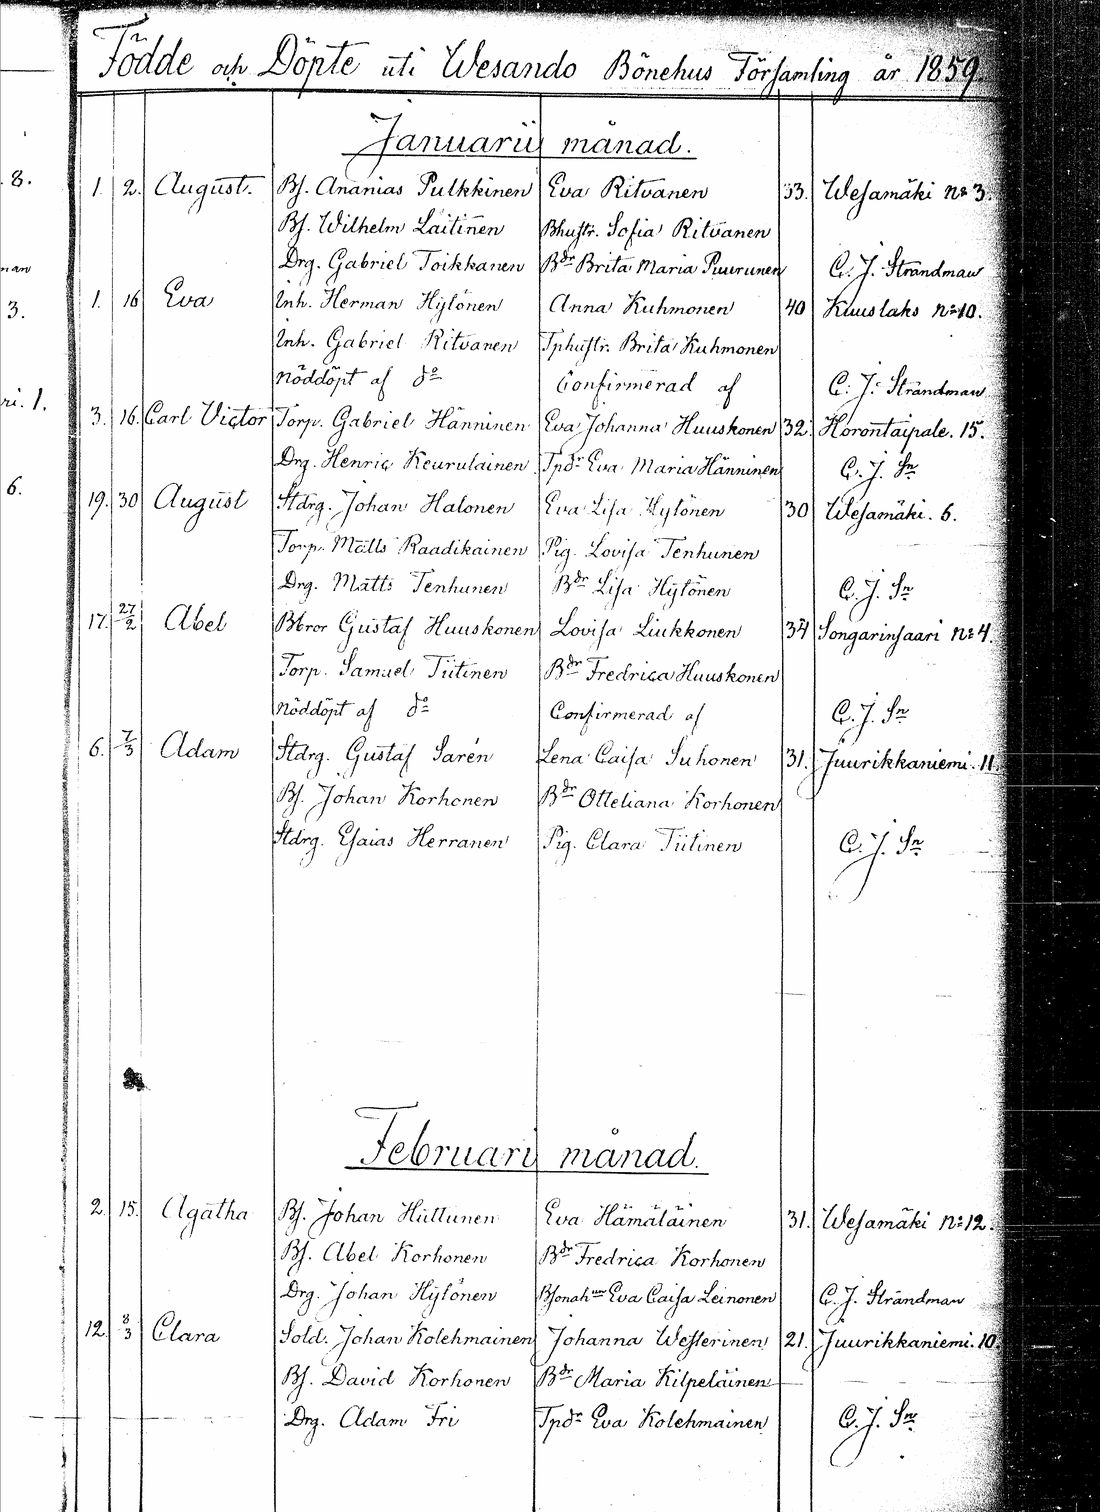 Födde och Döpte uti Wesando Bönehus Församling år 1859.
Januarii månad.
8. 1. 2. August. Bf. Ananias Pulkkinen Eva Ritvanen 33. Wesamäki No 3.
Bf. Wilhelm Laitinen Bhustr. Sofia Ritvanen
man Drg. Gabriel Toikkanen Bdr Brita Maria Puurunen C. J. Strandman
3. 1. 16 Eva Inh. Herman Hytönen Anna Kuhmonen 40 Kuuslaks No 10.
Inh. Gabriel Ritvanen Tphustr. Brita Kuhmonen
Nöddöpt af do Confirmerad af C. J. Strandman
ri. 1. 3. 16. Carl Victor Torp. Gabriel Hänninen Eva Johanna Huuskonen 32. Horontaipale. 15.
Drg. Henric Keurulainen Tpdr Eva Maria Hänninen C. J. Sn
6. 19. 30 August Stdrg. Johan Halonen Eva Lisa Hytönen 30 Wesamäki. 6.
Torp. Matts Raadikainen Pig. Lovisa Tenhunen
Drg. Matts Tenhunen Bdr Lisa Hytönen C. J. Sn
17. 27/2 Abel Bbror Gustaf Huuskonen Lovisa Liukkonen 34 Songarinsaari No 4.
Torp. Samuel Tiitinen Bdr Fredrica Huuskonen
Nöddöpt af do Confirmerad af C. J. Sn
6. 7/3 Adam Stdrg. Gustaf Sarén Lena Caisa Suhonen 31. Juurikkaniemi. 11.
Bf. Johan Korhonen Bdr Otteliana Korhonen
Stdrg. Esaias Herranen Pig. Clara Tiitinen C. J. Sn
Februari månad.
2. 15. Agatha Bf. Johan Huttunen Eva Hämäläinen 31. Wesamäki No 12.
Bf. Abel Korhonen Bdr Fredrica Korhonen
Drg. Johan Hytönen Eva Caisa Leinonen C. J. Strandman
12. 8/3 Clara Sold. Johan Kolehmainen Johanna Westerinen 21. Juurikkaniemi. 10.
Bf. David Korhonen Bdr Maria Kilpeläinen
Drg. Adam Fri Tpdr Eva Kolehmainen C. J. Sn